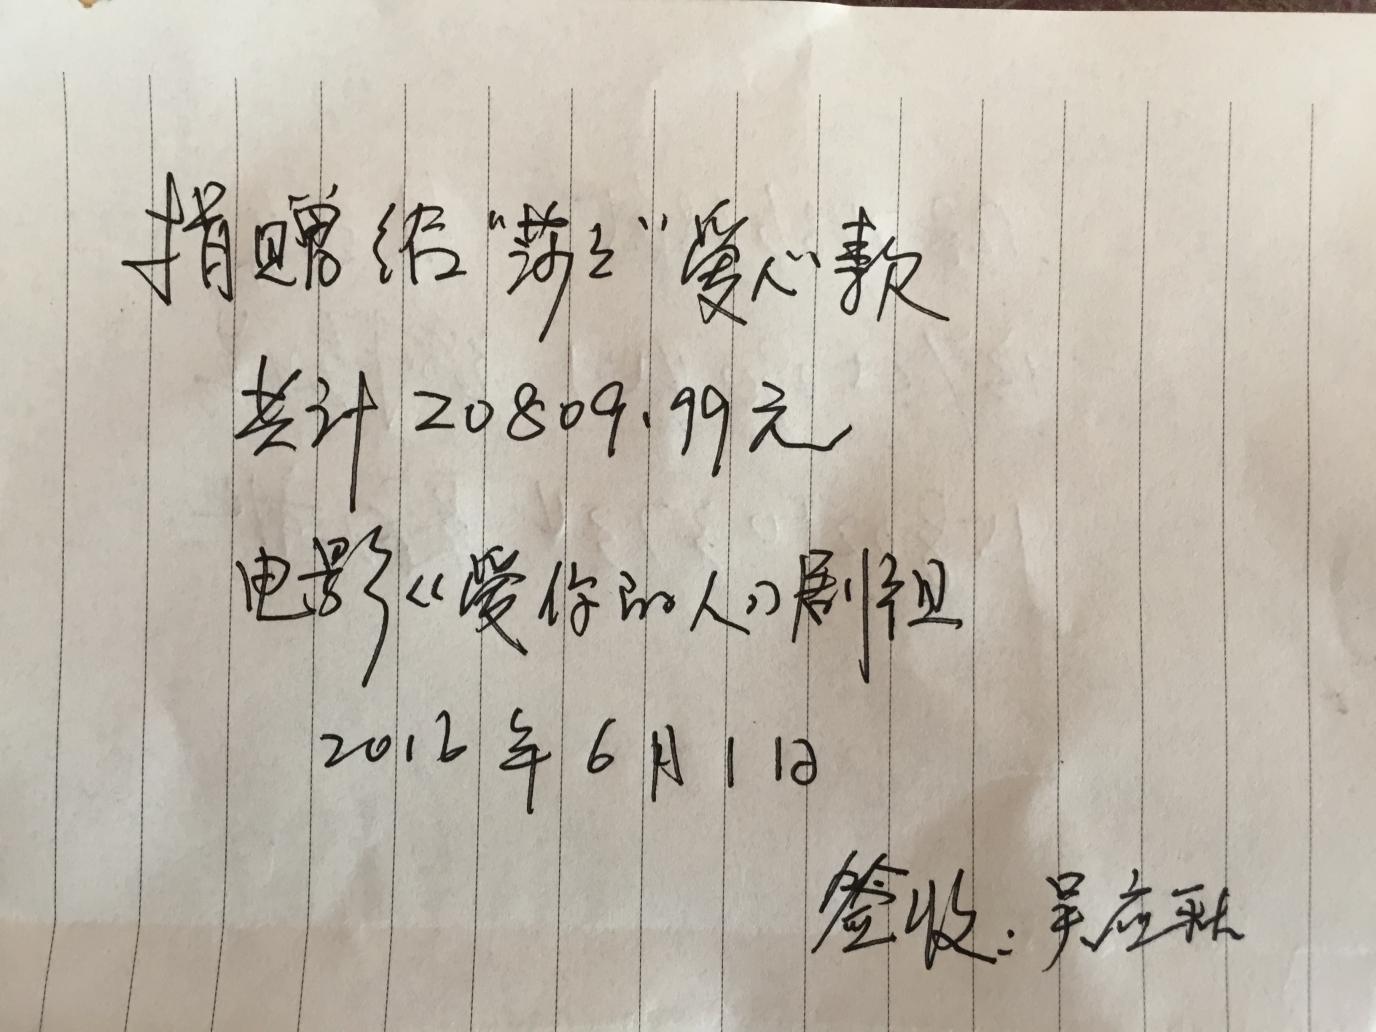 捐赠给“莎莎”爱心款
共计20809.99元
电影《爱你的人》剧组
2016年6月1日
签收：吴应秋